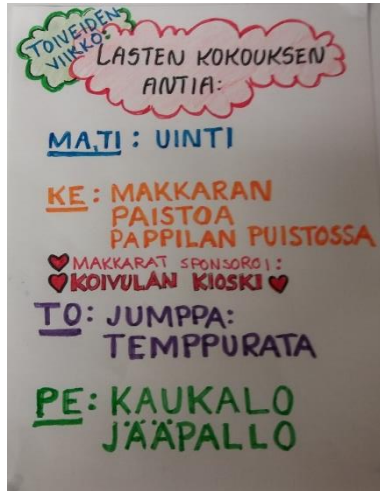 TOIVEIDEN
VIIKKO:
LASTEN KOKOUKSEN
ANTIA:
MA,TI: UINTI
KE: MAKKARAN
PAISTOA
PAPPILAN PUISTOSSA
MAKKARAT SPONSOROI:
KOIVULAN KIOSKI
TO: JUMPPA:
TEMPPURATA
PE: KAUKALO
JÄÄPALLO